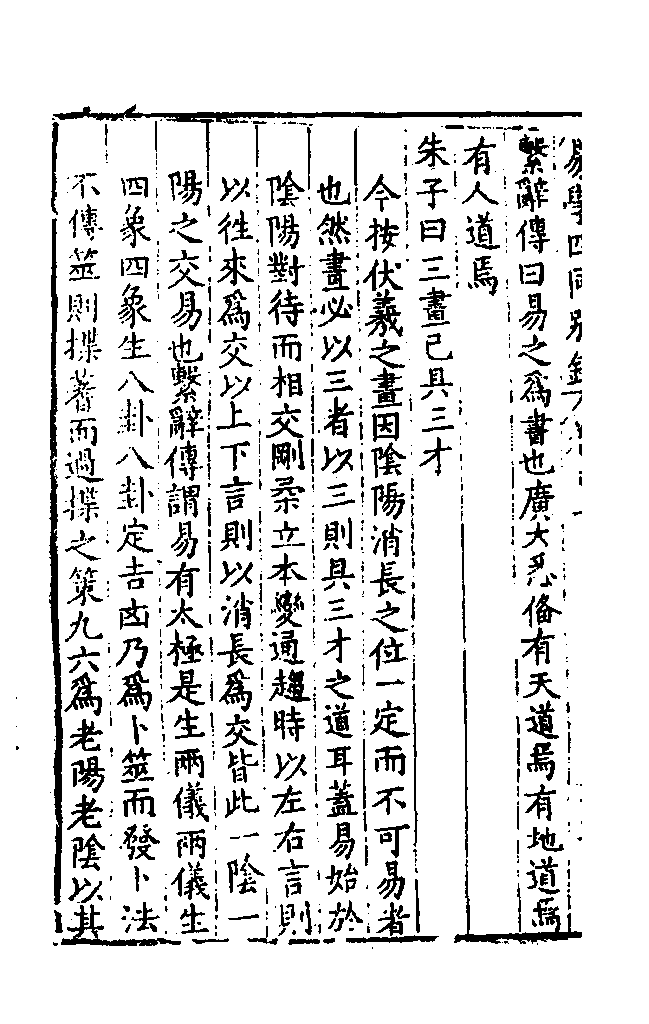 易學四同別錄
繫辭傳曰易之爲書也廣大悉偹有天道焉有地道焉
有人道焉
朱子曰三畫已具三才
今按伏羲之畫因陰陽消長之位一定而不可易者
也然畫必以三者以三則具三才之道耳蓋易始於
陰陽對待而相交剛柔立本變通趨時以左右言則
以徃來爲交以上下言則以消長爲交皆此一陰一
陽之交易也繫辭傳謂易有太極是生兩儀兩儀生
四象四象生八卦八卦定吉凶乃爲卜筮而發卜法
不傳筮則揲蓍而過揲之策九六爲老陽老陰以其